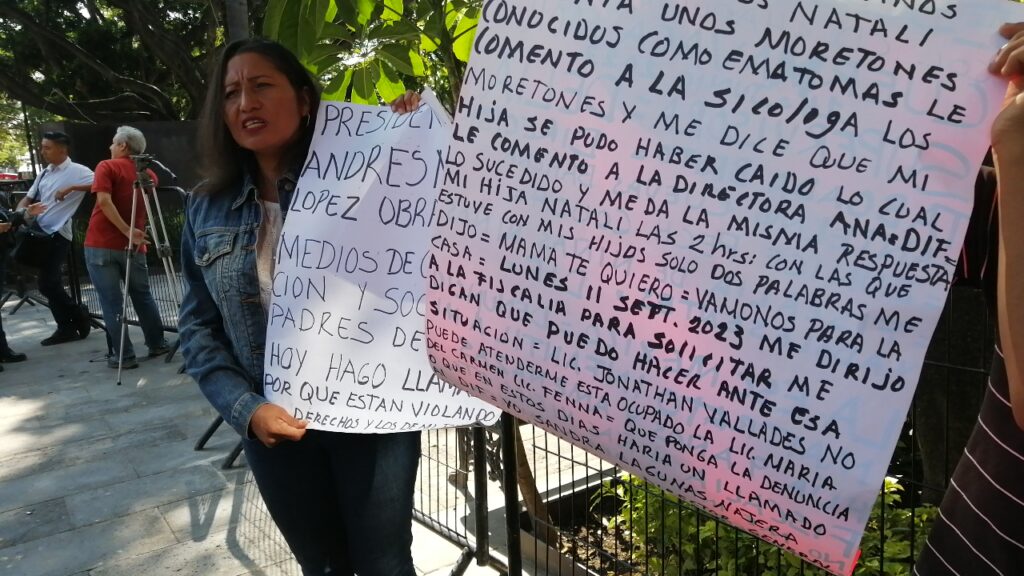 PRESIDEN
ANDRES M
LOPEZ OBR
MEDIOS DE C
CION Y SOC
PADRES DE
HOY HAGO LLAM
POR QUE ESTAN VIOLANDO
DERECHOS Y LOS DE
NATALI
UNOS MORETONES
CONOCIDOS COMO EMATOMAS LE
COMENTO A LA SICOLOGA LOS
MORETONES Y ME DICE QUE MI
HIJA SE PUDO HABER CAIDO LO CUAL
LE COMENTO A LA DIRECTORA ANA = DIF =
LO SUCEDIDO Y ME DA LA MISMA RESPUESTA
MI HIJA NATALI LAS 2 hrs: CON LAS QUE
ESTUVE CON MIS HIJOS SOLO DOS PALABRAS ME
DIJO = MAMA TE QUIERO = VAMONOS PARA LA
CASA = LUNES 11 SEPT. 2023 ME DIRIJO
A LA FISCALIA PARA SOLICITAR ME
DICAN QUE PUEDO HACER ANTE ESA
SITUACION = LIC. JONATHAN VALLADES NO
PUEDE ATENDERME ESTA OCUPADO LA LIC. MARIA
DEL CARMEN LIC. FENNA = QUE PONGA LA DENUNCIA
QUE EN ESTOS DIAS HARIA UN LLAMADO
LAGUNAS NAJERA